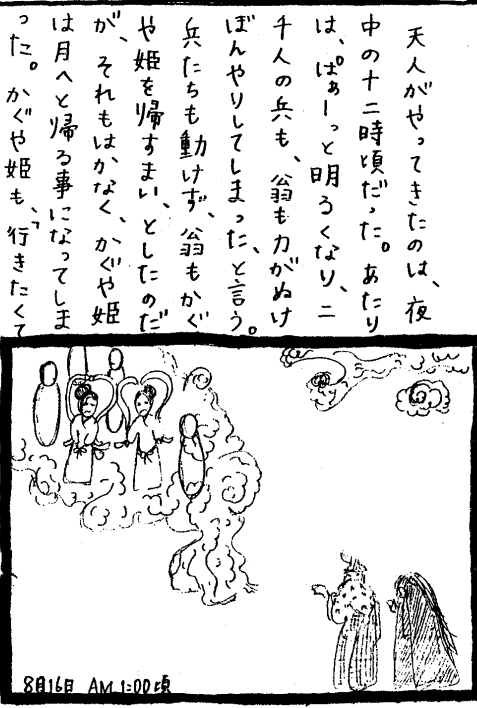 天人がやってきたのは、夜
中の十二時頃だった。あたり
は、ぱぁーっと明るくなり、二
千人の兵も、翁も力がぬけ
ぼんやりしてしまった、と言う。
兵たちも動けず、翁もかぐ
や姫を帰すまい、としたのだ
が、それもはかなく、かぐや姫
は月へと帰る事になってしま
った。かぐや姫も、「行きたくて
8月16日 AM 1:00頃